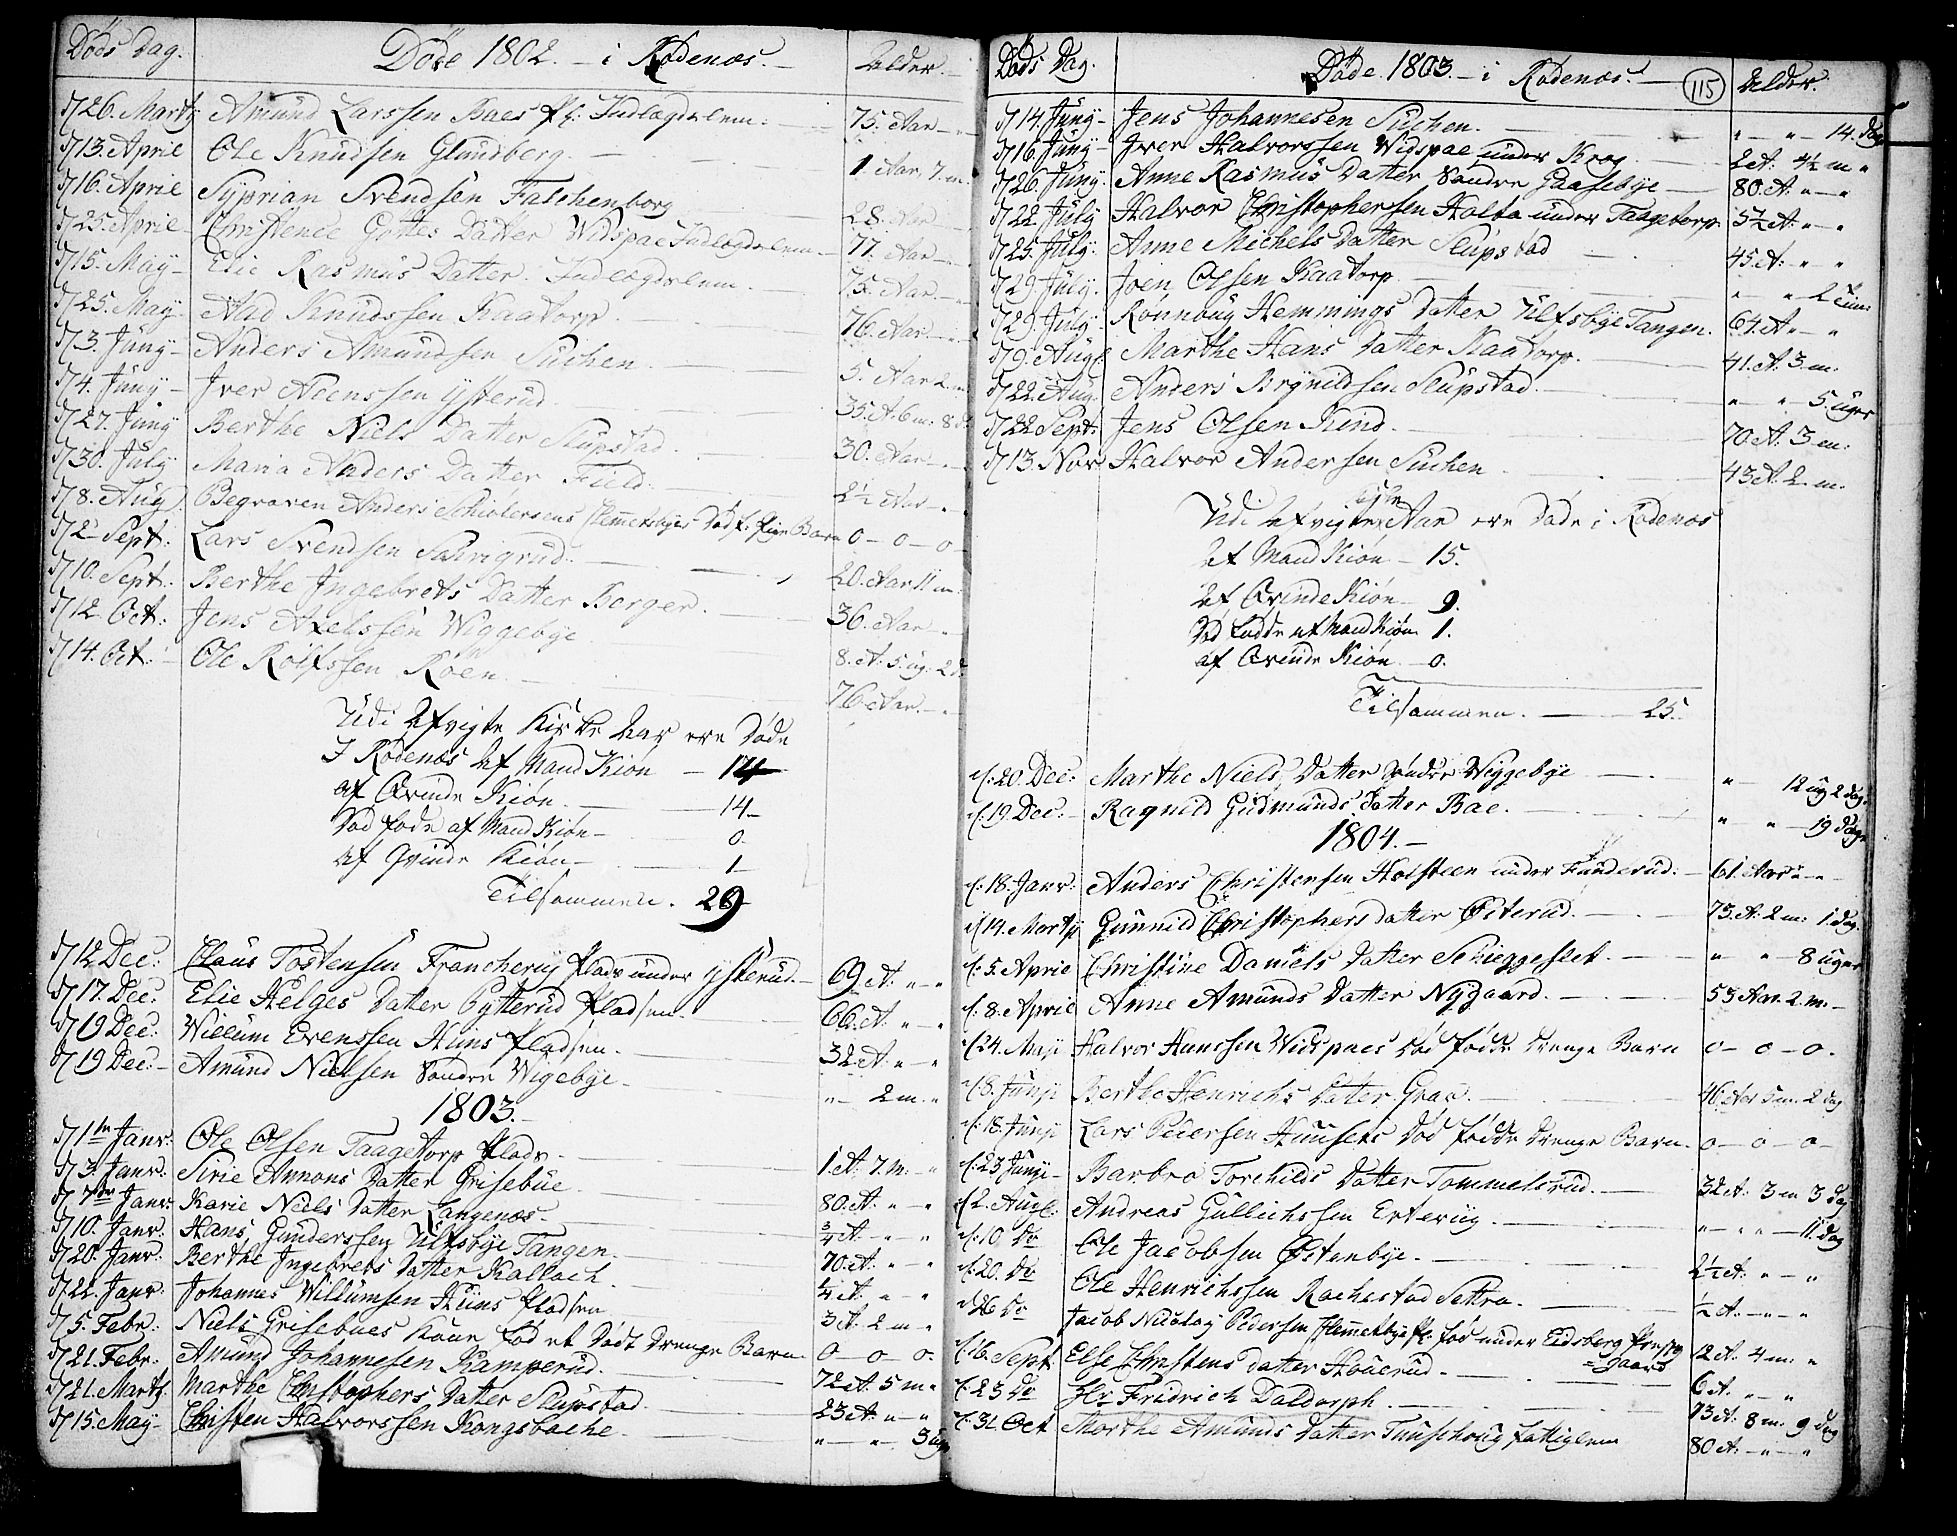 Døds Dag. Døde 1802. – i Rødenæs. – Alder. –
d/26. Martj Amund Larssen Baes Pl: Indlægdslem. 75. Aar
d/13. April Ole Knudsen Glundberg. 1. Aar, 7. m.
d/16. April Syprian Svendsen Falchenborg 28. Aar
d/25. April Christence Gottes Datter Widspae Indlægdslem 77. Aar
d/15. May Elie Rasmus Datter. Indlægdslem. 75. Aar.
d/25. May Aad Knudssen Kaatorp 76. Aar
d/3. Juny Anders Amundsen Suchen 5. Aar 2. m
d/4. Juny Iver Adenssen Ysterud 35. A. 6 m: 8 d.
d/27. Juny Berthe Niels Datter Slupstad 30. Aar
d/30. July Maria Anders Datter Field 2½ Aar
d/8. Aug Begraven Anders Schiølersens Clemmetsbyes Død f. Barn 0 – 0 – 0
d/2 Sept: Lars Svendsen 20. Aar 11 m.
d/10. Sept: Berthe Ingebrets Datter Berger. 36. Aar
d/12 Oct: Jens Axelssen Wiggebye 8. A. 5. ug. 2 d.
d/14. Oct: Ole Rolfssen Roen 76 Aar.
Udi Afvigte Kirke Aar ere Døde
I Rødenæs Af Mand Kiøn – 14
af Qvinde Kiøn. – 14 –
Død fødde af Mand Kiøn – 0.
Af Qvinde Kiøn – 1
Tilsammen. 29
d/12 Dec: Claus Tostensen Francherug Plads under Ysterud. 69 A. " – "
d/17. Dec: Elie Helges Datter Pytterud Pladsen. 66. A. " – "
d/19 Dec: Willum Evenssen Huns Pladsen. 32 A. " – "
d/19 Dec: Amund Nielsen Søndre Wigebye. " – 2 m. "
1803.
d/1te Janr: Ole Olsen Taagetorp Plads. 1. A. 7. m. – "
d/3. Janr: Sirie Amons Datter Grisebue 80. A. " – "
d/7de Janr: Karie Niels Datter Langenæs. ¾ A. – " "
d/10. Janr: Hans Gunderssen Ulfsbye Tangen. 70. A. " – "
d/20. Janr: Berthe Ingebrets Datter Kallach. 4 A. " – "
d/22. Janr: Johannes Willumsen Huns Pladsen 3 A. 2 m – "
d/5. Febr: Niels Grisebues Kone fød et Dødt Drenge Barn 0 – 0 – 0.
d/21. Febr: Amund Johannesen Kamperud. 72 A. 5 m. "
d/21. Martj. Marthe Christophers Datter Slupstad. 23 A. " – "
d/15. May Christen Halvorssen Kongsbache. " – " – 3 uger
Døds Dag. Døde. 1803. – i Rødenæs. – 115 Alder.
d/14. Juny Jens Johannesen Suchen. " – " – 14. dage
d/16. Juny Iver Halvorssen Widspae under Krog 2 A. 4½ m "
d/26. Juny Anne Rasmus Datter Søndre Gaasebye 80. A. " – "
d/22. July Halvor Christophersen Holta under Taagetorp. 52 A. " – "
d/25. July. Anne Michels Datter Slupstad 45. A. " – "
d/29 July. Joen Olsen Kaatorp " – " – 2 Tim:
d/29. July. Rønnoug Hemmings Datter Ulfsbye Tangen. 64. A. " – "
d/9. Aug. Marthe Hans Datter Kaatorp. 41. A. 3. m.
d/22. Aug. Anders Brynildsen Slupstad. " – " 5. uger
d/22 Sept: Jens Olsen Kind. 70. A. 3 m.
d/13. Nov Halvor Andersen Suchen 43 A. 2 m.
Udi Afvigte Kirke Aar ere Døde i Rødenæs
Af Mand Kiøn – 15.
Af Qvinde Kiøn – 9.
Død fødde af Mand Kiøn 1.
af Qvinde Kiøn – 0.
Tilsammen. – 25.
d: 20. Dec: Marthe Niels Datter Søndre Wiggebye " 12 ug 2 dag.
d: 19. Dec: Ragnild Gudmunds Datter Bae. " " – 19 Dage
1804. –
d: 18. Janr: Anders Christensen Holsteen under Funderud. 61. Aar " –
d: 14. Martj Gunnild Christophers datter Østerud. 73. A. 2 m: 1 dag.
d: 5. April Christine Daniels Datter Schieggeslet. " " – 8 uger
d: 8. April Anne Amunds Datter Nygaard. 53 Aar. 2. m. –
d: 24. Maji Halvor Hanssen Widspaes Død fødde Drenge Barn 0 – 0 – 0.
d: 8. Junji Berthe Henrichs Datter Graa. 46. Aar 5 m. 2 dag
d: 18. Junji Lars Pedersen Huusers Død fødde Drenge Barn. 0 – 0 – 0 –
d: 23 Junji Barbro Torchilds Datter Tommelsrud. 32 A. 3 m 3 dag
d: 2. Aug: Andreas Gullichssen Erterug. " – " " – 11 dag
d: 10. Do Ole Jacobsen Østenbye. 2½ A. " – "
d: 20. Do Ole Henrichssen Rachestad Settra. ½ A. – " – "
d: 26 Do Jacob Nicolay Pedersen Clemmetsbye Pl: fød under Eidsberg Præste 12 A. 4 m. "
= gaard
d: 16. Sept. Else Christens datter Houerud. 6 A. " – "
d: 23 Do Hr Fridrich Daldorph. 73 A. 8 m. 9 dag
d: 31 Oct Marthe Amunds Datter Tuusehoug fattiglem 80 A. – " – "